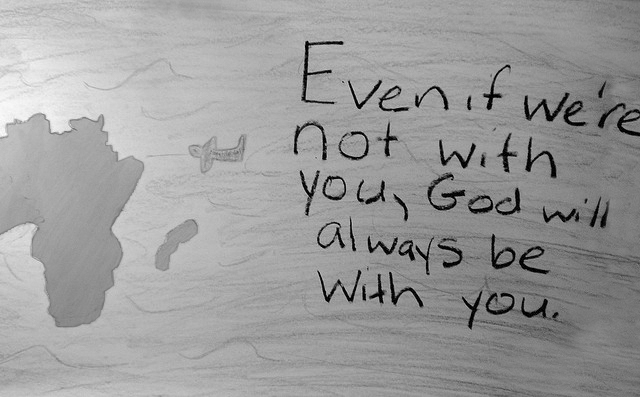 Even if we're
not with
you, God will
always be
with you.